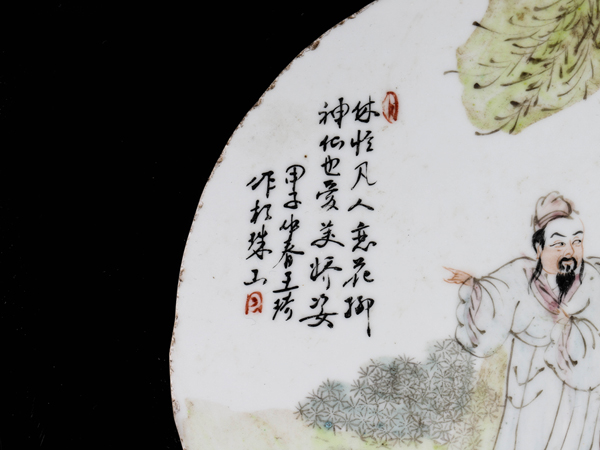 休怪凡人恋花柳
神仙也爱美娇姿
甲子仲春王琦
作於珠山